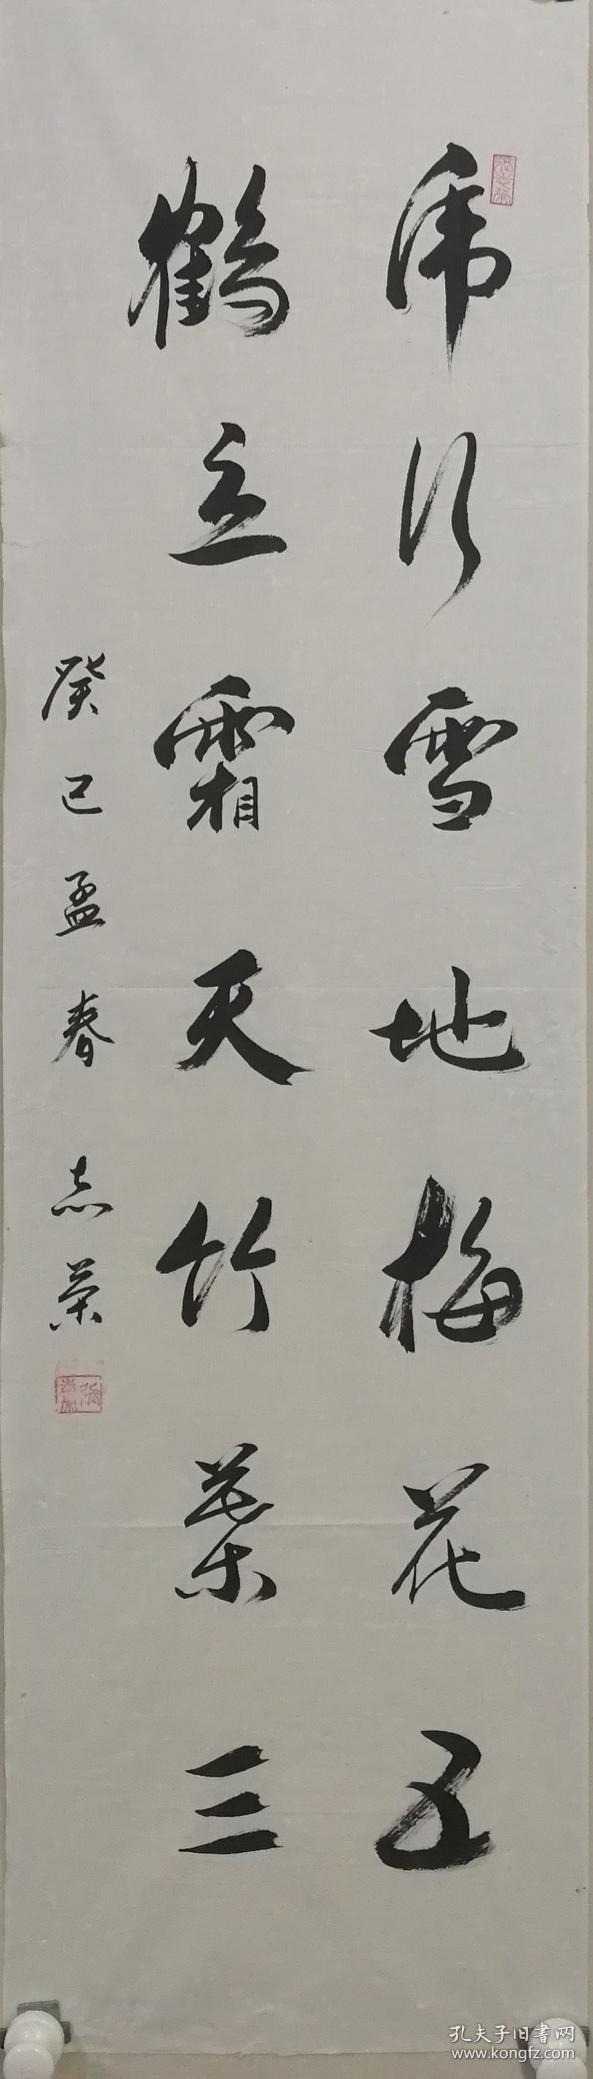 虎行雪地梅花五
鹤立霜天竹叶三
癸巳孟春 志荣
孔夫子旧书网
www.kongfz.com